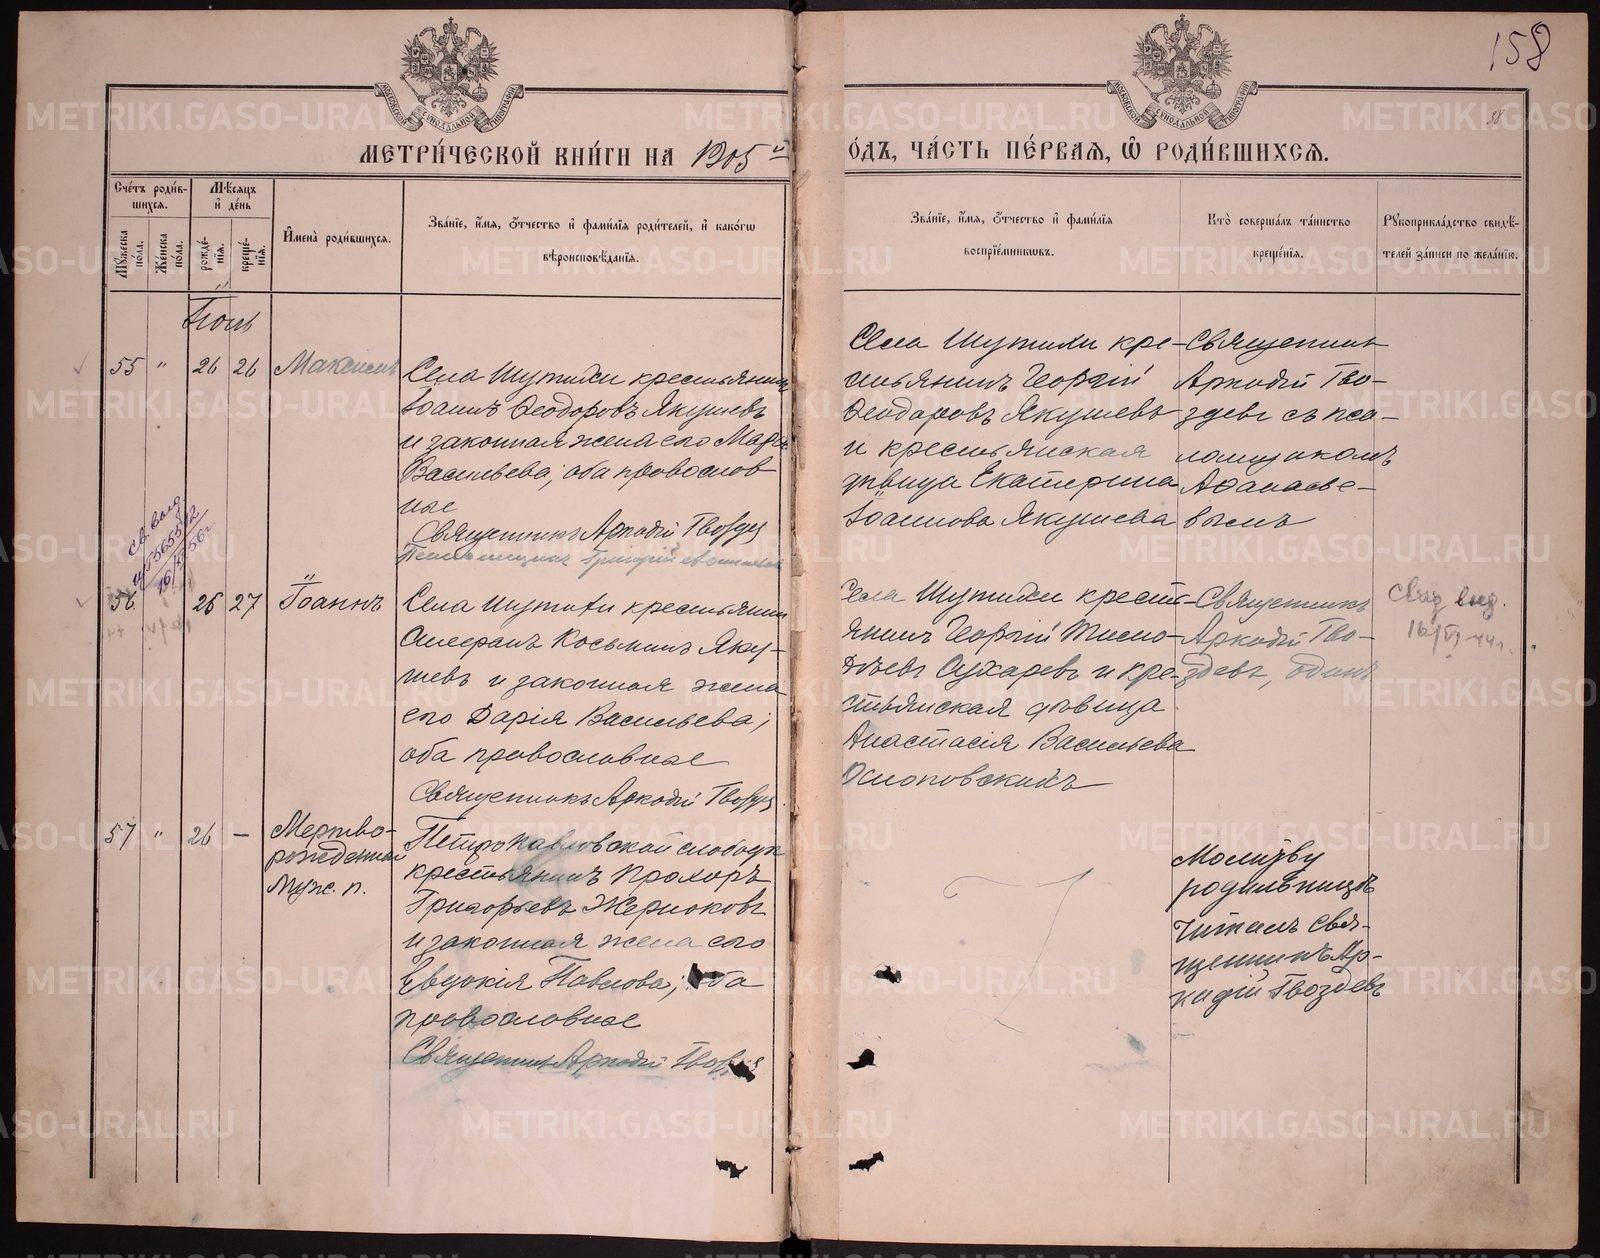 158
38
МОСКОВСКОЙ СѴНОДАЛЬНОЙ ТИПОГРАФІИ
МОСКОВСКОЙ СѴНОДАЛЬНОЙ ТИПОГРАФІИ
МЕТРИ́ЧЕСКОЙ КНИ́ГИ НА 1905 й
О́ДЪ, ЧА́СТЬ ПЕ́РВАЯ, Ѡ҆ РОДИ́ВШИХСЯ.
Сче́тъ роди́в-
шихся.
Мꙋжеска по́ла.
Же́нска по́ла.
Мѣ́сяцъ
и҆ де́нь
рожде́-
нїѧ.
креще́-
нїѧ.
И҆мена̀ роди́вшихся.
Зва́нїе, и҆́мя, ѻ҆́тчество и҆ фами́лїя роди́телей, и҆ како́гѡ
вѣроисповѣ́данїя.
Зва́нїе, и҆́мя, ѻ҆́тчество и҆ фами́лїя
воспрїе́мниковъ.
Кто̀ соверша́лъ та́инство
креще́нїя.
Рꙋкоприкла́дство свидѣ́-
телей за́писи по жела́нїю.
Іюнь
55 " 26 26 Максимъ
Села Шутихи крестьянинъ
Іоаннъ Ѳеодоровъ Якушевъ
и законная жена его
Васильева, оба православ
ные
Священникъ Аркадій Гвоздев
Псаломщикъ Григорій
Села Шутихи кре-
стьянинъ Георгій
Ѳеодоровъ Якушевъ
и крестьянская
дѣвица Екатерина
Іоаннова Якушева
Священникъ
Аркадій Гво-
здевъ съ пса-
ломщикомъ
Аѳанасье-
вымъ
св. выд.
56 26 27 Іоаннъ
Села Шутихи крестьянин
Косьминъ Яку-
шевъ и законная жена
его Дарія Васильева;
оба православные
Священникъ Аркадій Гвоздев
Села Шутихи крест-
янинъ Георгій Тимо-
ѳеевъ Сухаревъ и кре-
стьянская дѣвица
Анастасія Васильева
Священникъ
Аркадій Гво-
здевъ, одинъ
Свид выд.
16/VI-44г.
57 " 26 — Мертво-
рожденный
Муж. п.
Петропавловской слободы
крестьянинъ Прохоръ
Григорьевъ Жерноковъ
и законная жена его
Евдокія Павлова; оба
православные
Священникъ Аркадій Гвоздев
Молитву
родильницѣ
читалъ Свя-
щенникъ Ар-
кадій Гвоздевъ
METRIKI.GASO-URAL.RU